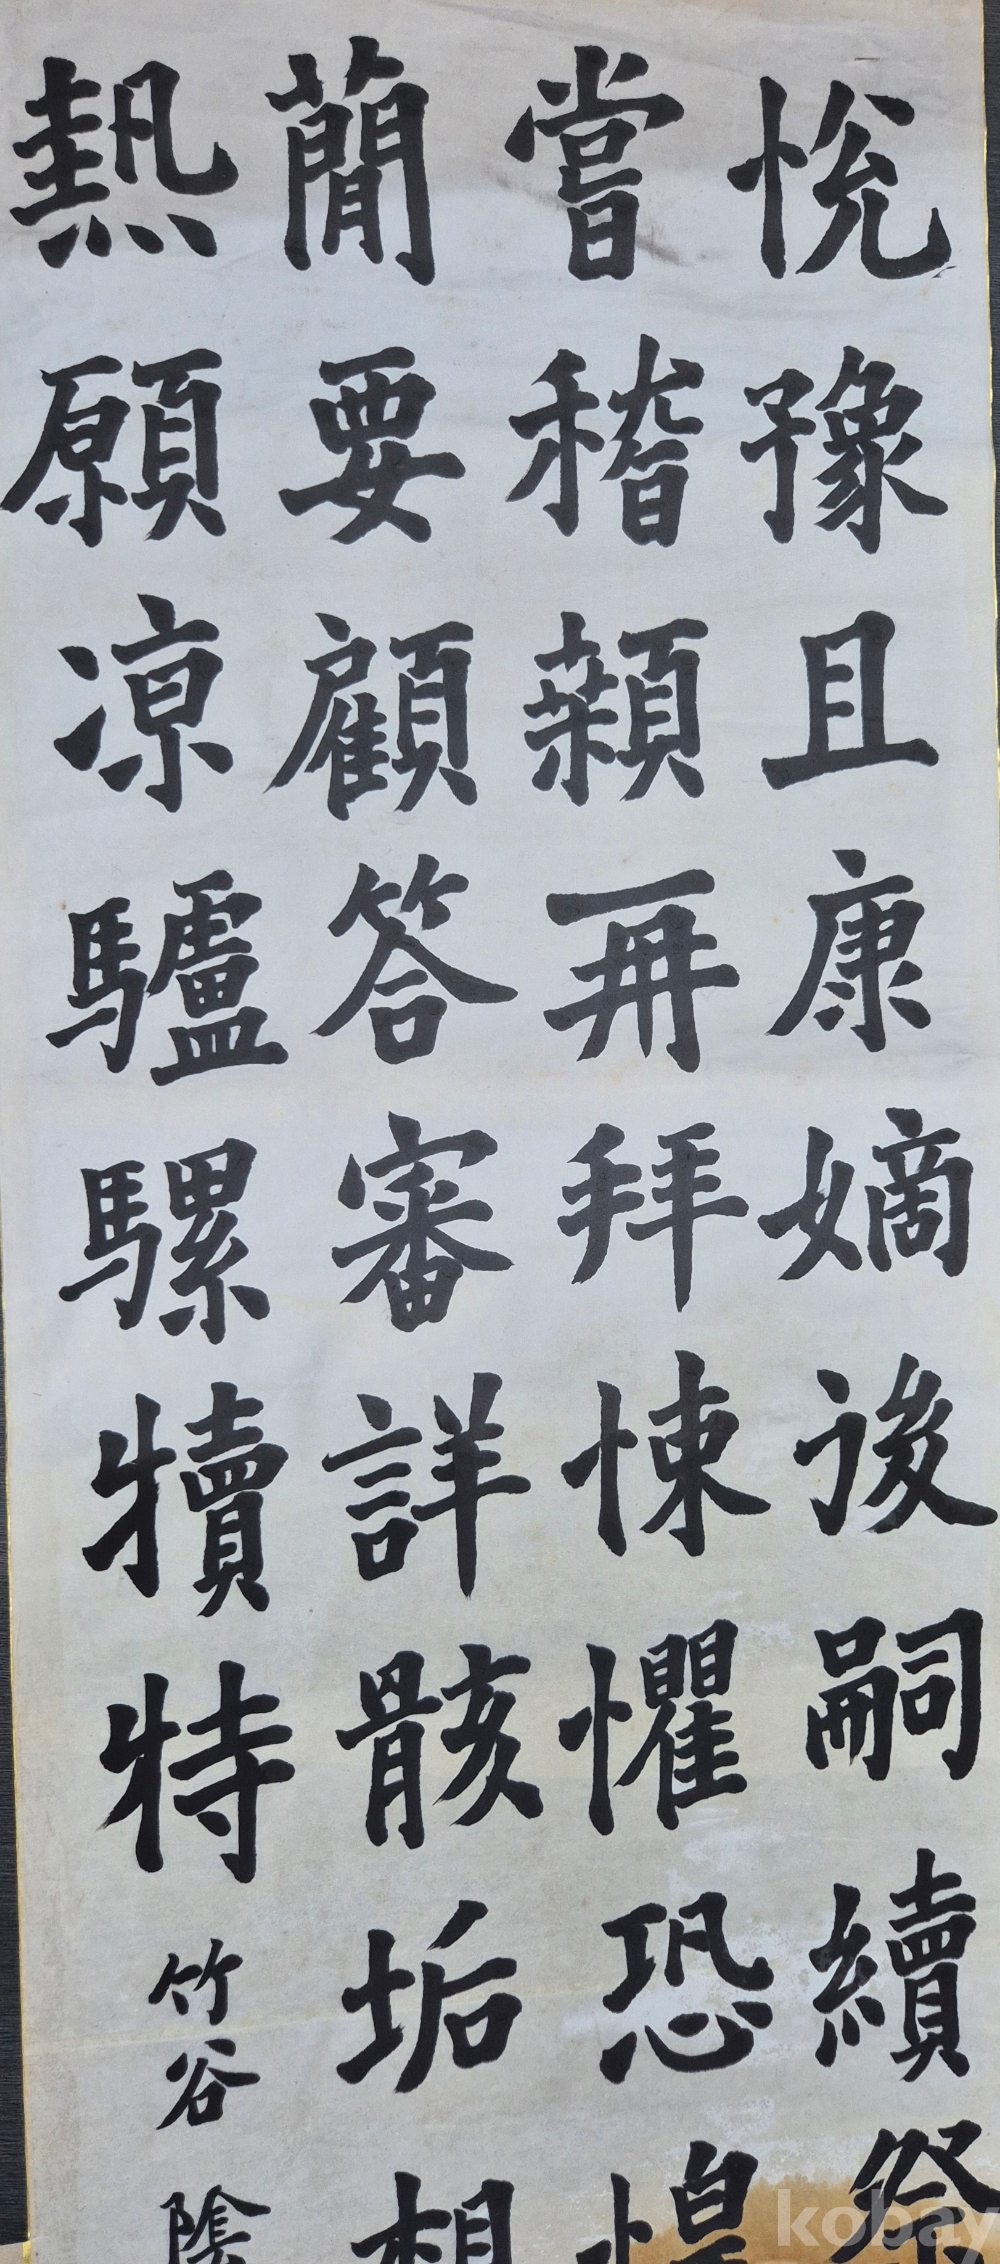 悅豫且康嫡後嗣續祭
嘗稽顙再拜悚懼恐惶
簡要顧答審詳骸垢想
熱願凉驢騾犢特
竹谷陰
kobay